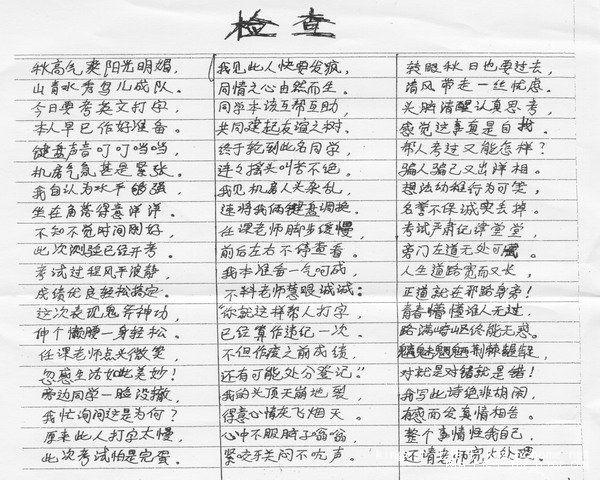 检查
秋高气爽阳光明媚，
山青水秀鸟儿成队。
今日要考英文打字，
本人早已作好准备。
键盘声音叮叮当当，
机房气氛甚是紧张。
我自认为水平够强，
坐在角落得意洋洋。
不知不觉时间刚好，
此次测验已经开考。
考试过程风平浪静，
成绩优良轻松搞定。
这次表现鬼斧神功，
伸个懒腰一身轻松。
任课老师点头微笑，
忽感生活如此美妙！
旁边同学一脸沮丧，
我忙询问这是为何？
原来此人打字太慢，
此次考试怕是完蛋。
我见此人快要发疯，
同情之心由然而生。
同学本该互帮互助，
共同建起友谊之树。
终于轮到此名同学，
连连摇头叫苦不绝。
我见机房人头杂乱，
速将我俩键盘调换。
任课老师脚步缓慢，
前后左右不停查看。
我本准备一气呵成，
不料老师慧眼诚诚。
“你就这样帮人打字，
已经算作违纪一次。
不但作废之前成绩，
还有可能处分登记。”
我的头顶天崩地裂，
得意心情灰飞烟灭。
心中不服脖子嗡嗡，
紧咬牙关闷不吭声。
转眼秋日也要过去，
清风带走一丝忧虑。
头脑清醒认真思考，
感觉这事真是自找。
帮人考过又能怎样？
骗人骗己又出洋相。
想法幼稚行为可笑，
名誉不保诚实丢掉。
考试严肃纪律堂堂，
旁门左道无处可藏。
人生道路宽而又长，
正道就在那路身旁！
青春懵懂谁人无过，
路满崎岖终能无惑。
魑魅魍魉荆棘龌龊，
对就是对错就是错！
我写此诗绝非胡闹，
有感而发真情相告。
整个事情怪我自己，
还请老师宽大处理。